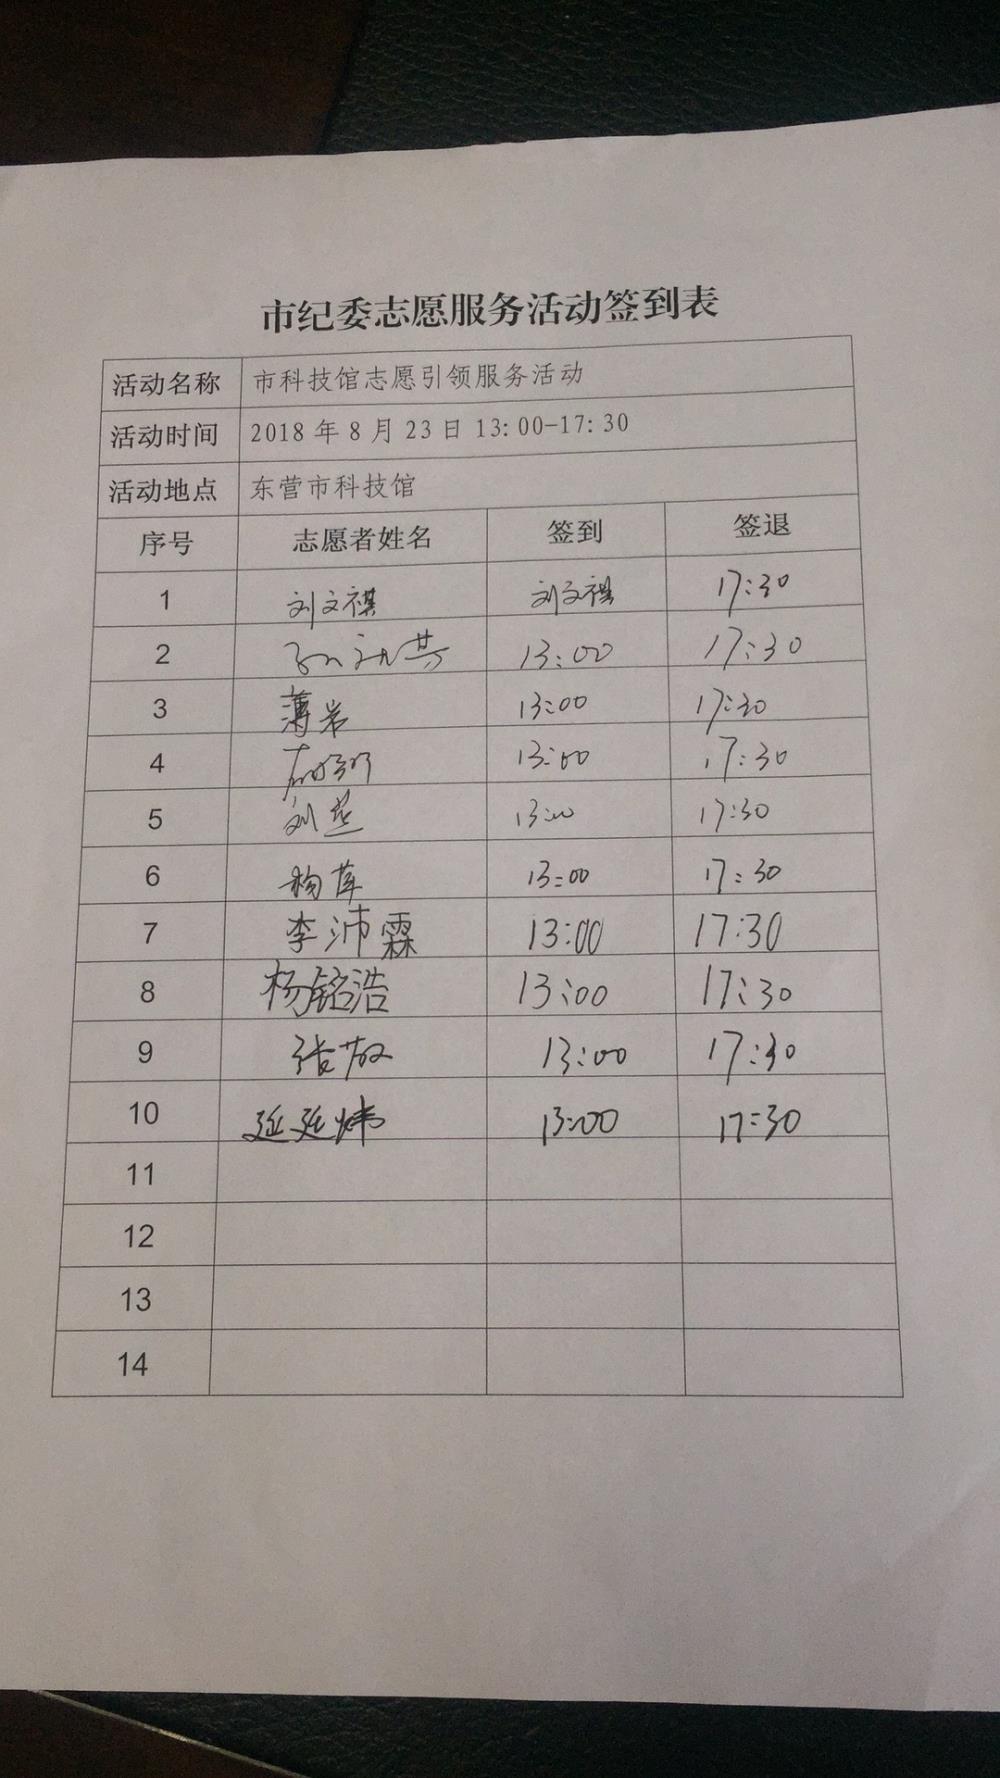 市纪委志愿服务活动签到表
活动名称 市科技馆志愿引领服务活动
活动时间 2018 年 8 月 23 日 13: 00-17: 30
活动地点 东营市科技馆
序号 志愿者姓名 签到 签退
1 刘文祺 刘文祺 17:30
2 13:00 17:30
3 薄岩 13:00 17:30
4 13:00 17:30
5 刘 13:00 17:30
6 13:00 17:30
7 李沛霖 13:00 17:30
8 杨铭浩 13:00 17:30
9 张敬 13:00 17:30
10 延廷炜 13:00 17:30
11
12
13
14